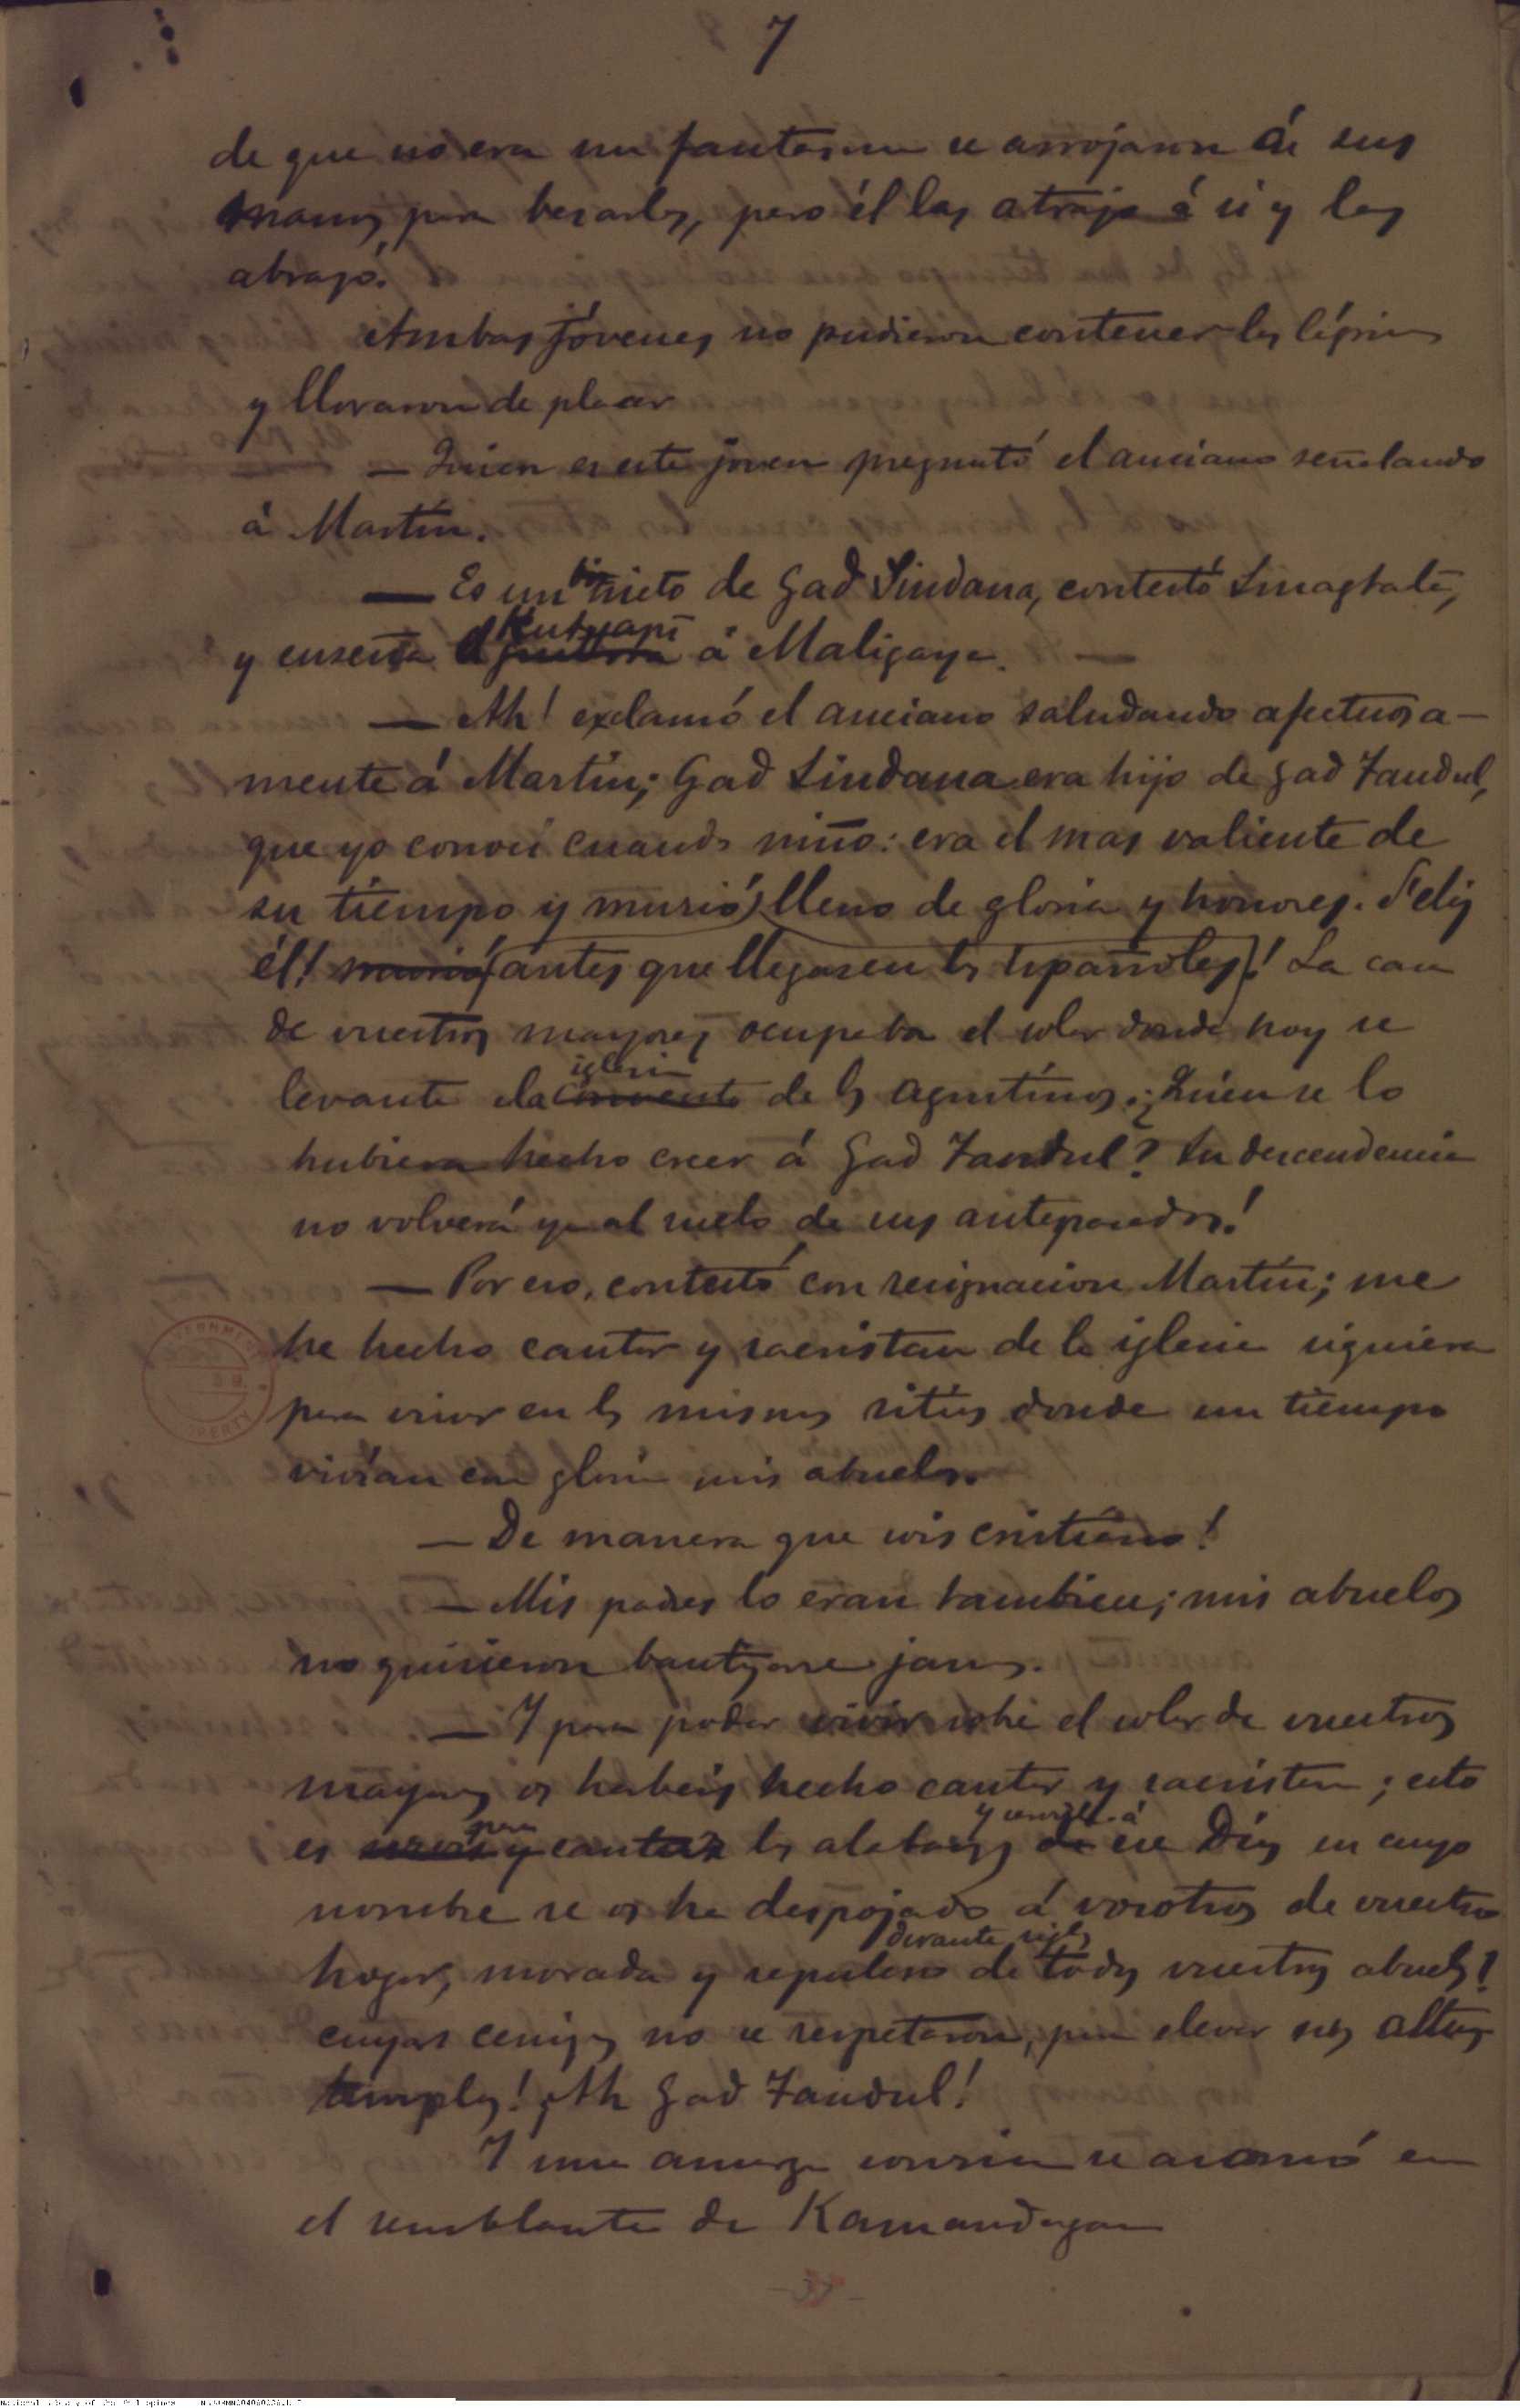 7
de que no era un fantasma se arrojaron á sus
manos para besarlas, pero él las atrajo á si y las
abrazó.
Ambas jóvenes no pudieron contener las lágrimas
y lloraron de placer
— Quien es este joven preguntó el anciano señalando
á Martín.
— Es un biznieto de Gad Sindana, contestó Sinagtala,
y enseña el Kutyapi á Maligaya. —
— Ah! exclamó el anciano saludando afectuosa-
mente á Martín; Gad Sindana era hijo de Gad Tandul,
que yo conocí cuando niño: era el mas valiente de
su tiempo y murió lleno de gloria y honores. Feliz
él! murió (antes que llegasen los españoles)! La casa
de vuestros mayores ocupaba el solar donde hoy se
levanta la iglesia convento de los Agustinos. ¿Quien se lo
hubiera hecho creer á Gad Tandul? Su descendencia
no volverá ya al suelo de sus antepasados!
— Por eso, contestó con resignacion Martín; me
he hecho cantor y sacristan de la iglesia siquiera
para vivir en los mismos sitios donde un tiempo
vivían con gloria mis abuelos.
— De manera que sois cristiano!
— Mis padres lo eran tambien; mis abuelos
no quisieron bautizarse jamas.
— Y para poder vivir sobre el solar de vuestros
mayores os habeis hecho cantor y sacristan; esto
es servís para y cantar las alabanzas y servir á de ese Dios en cuyo
nombre se os ha despojado á vosotros de vuestro
hogar, morada y sepulcro durante siglos de todos vuestros abuelos!
cuyas cenizas no se respetaron, para elevar sus altos
templos! Ah Gad Tandul!
Y una amarga sonrisa se asomó en
el semblante de Kamandagan
GOVERNMENT PROPERTY
National Library of the Philippines